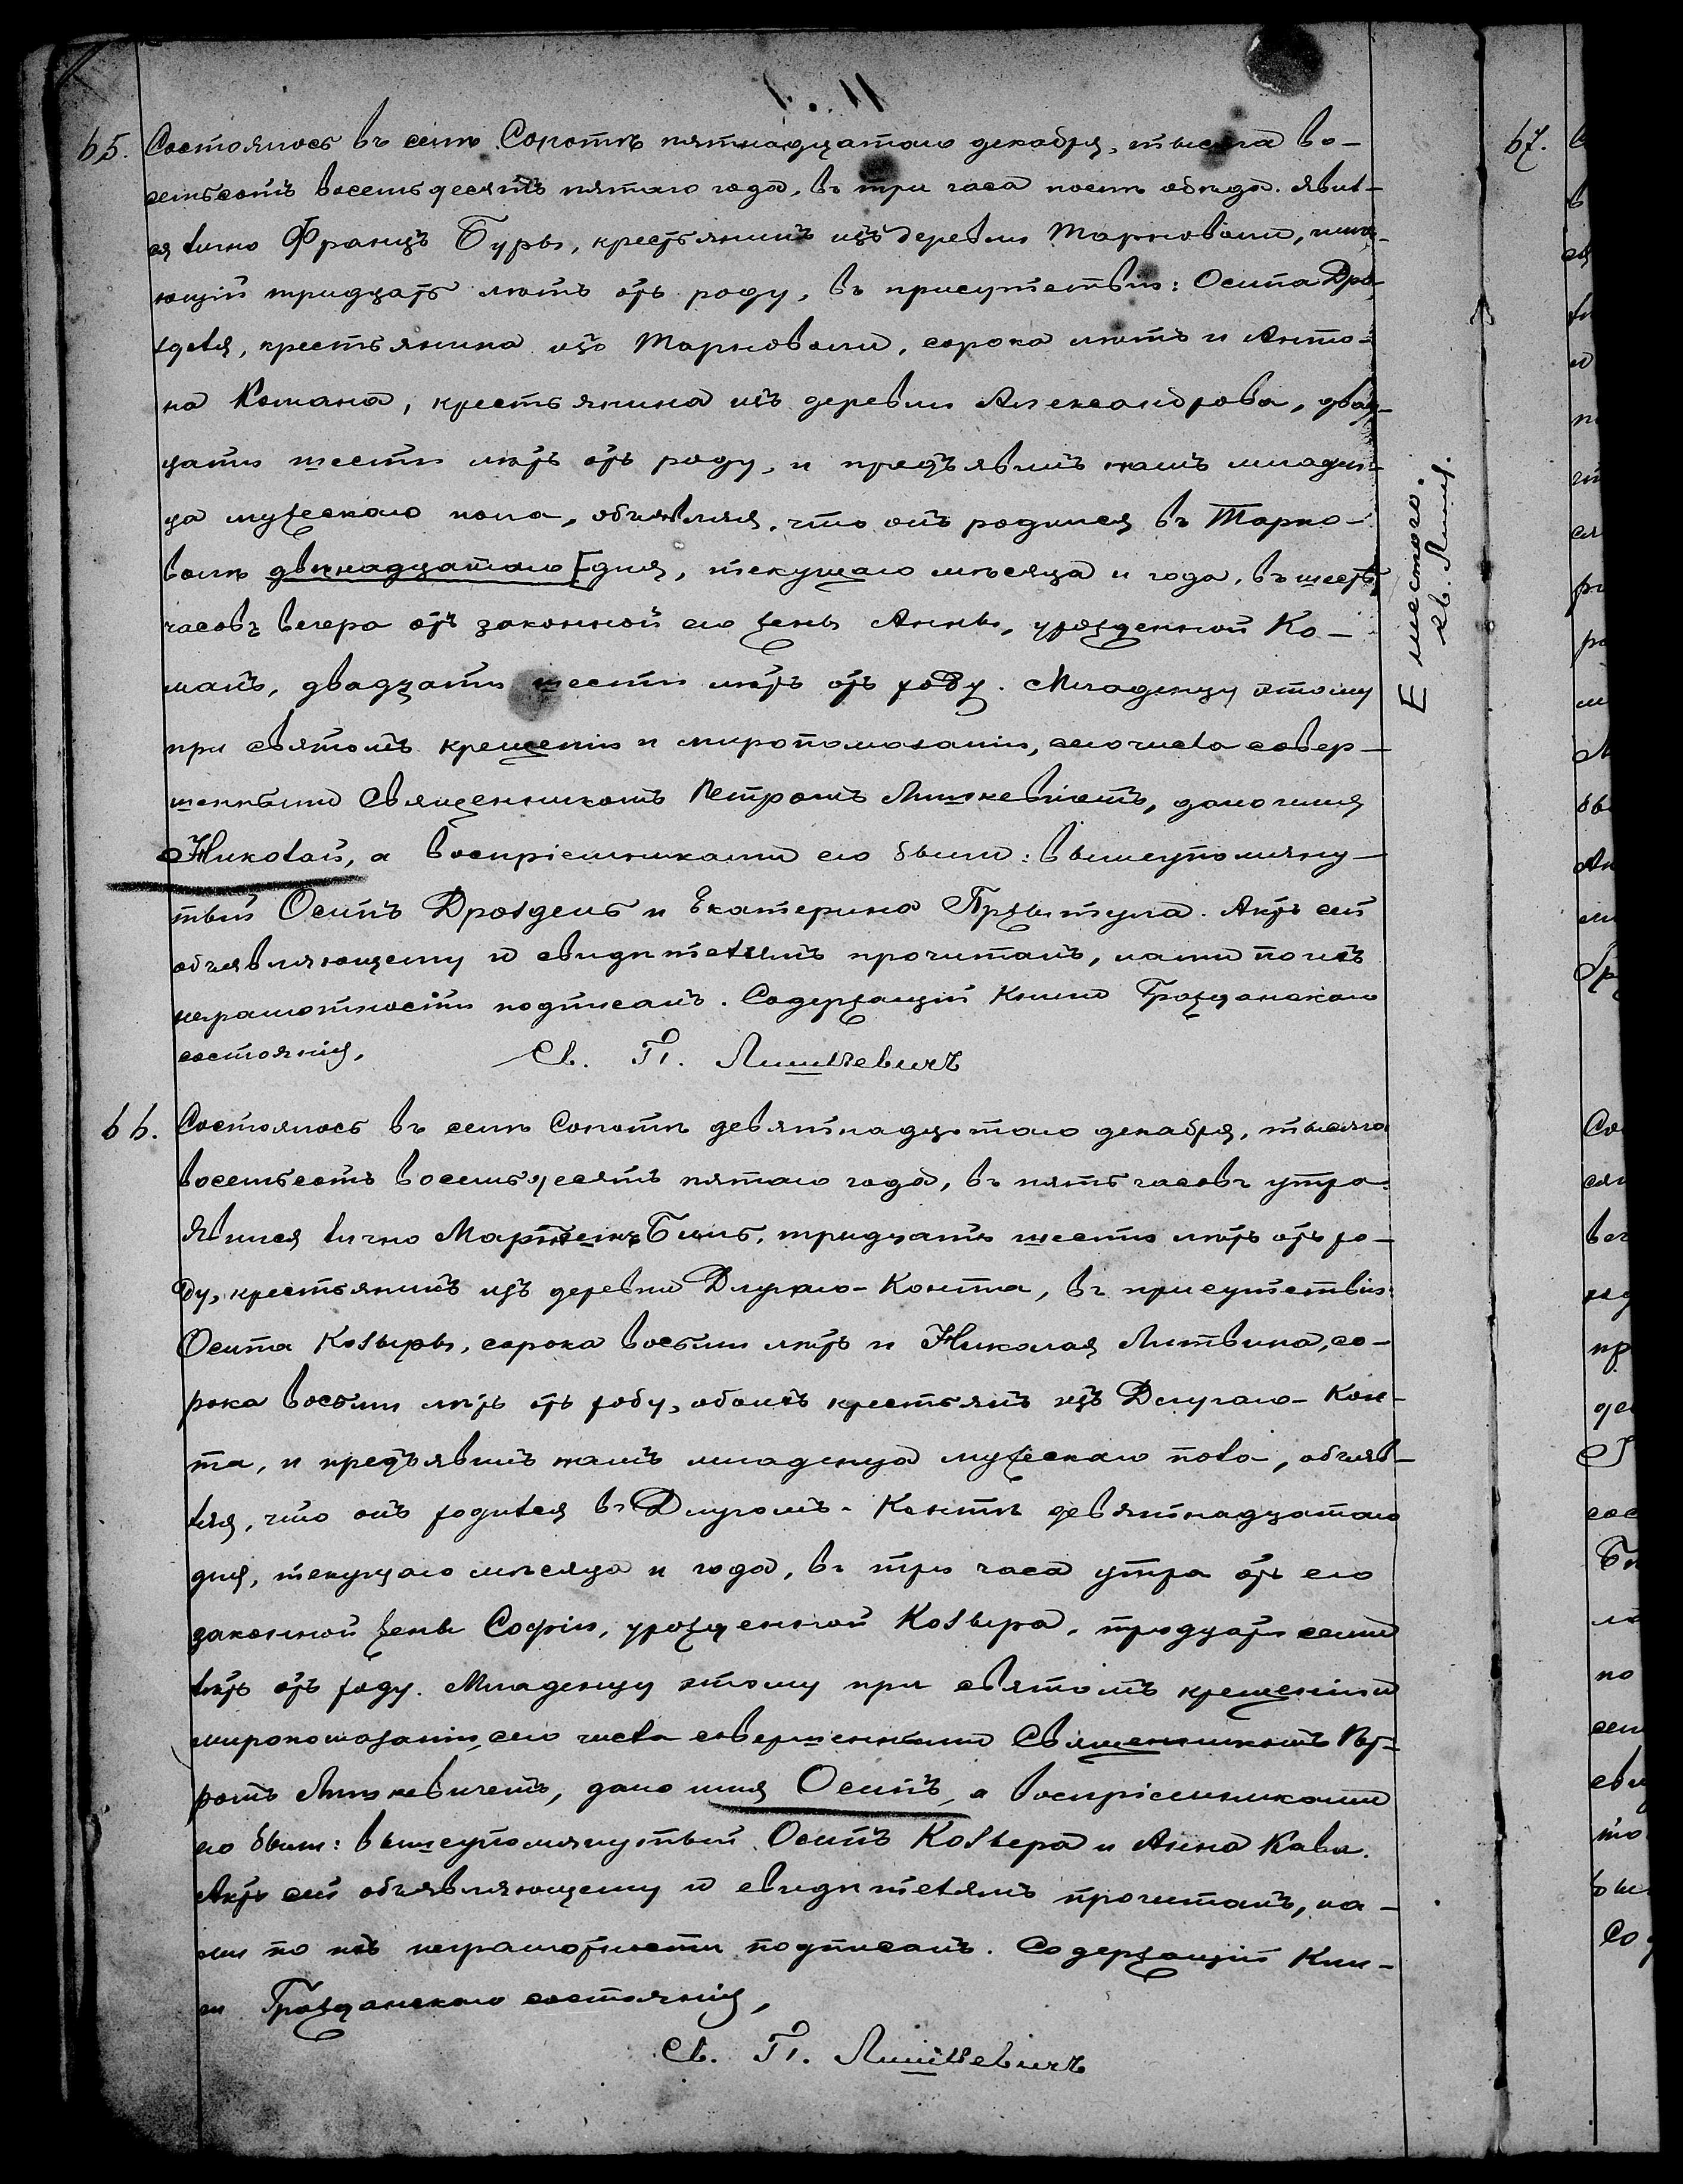 65. Состоялось въ селѣ Сопотѣ пятнадцатаго декабря, тысяча во-
семьсотъ восемьдесятъ пятаго года, въ три часа послѣ обѣда. Явил-
ся лично Францъ Буры, крестьянинъ изъ деревни Тарноволи, имѣ-
ющій тридцать лѣтъ отъ роду, въ присутствіи: Осипа Дро-
зделя, крестьянина изъ Тарноволи, сорока лѣтъ и Анто-
на Комана, крестьянина изъ деревни Александрова, двад-
цати шести лѣтъ отъ роду, и предъявилъ намъ младен-
ца мужескаго пола, объявляя, что онъ родился въ Тарно-
воли двѣнадцатаго [дня, текущаго мѣсяца и года, въ шесть
часовъ вечера отъ законной его жены Анны, урожденной Ко-
манъ, двадцати шести лѣтъ отъ роду. Младенцу этому
при святомъ крещеніи и миропомазаніи, сего числа совер-
шенными Священникомъ Петромъ Лишкевичемъ, дано имя
Николай, а воспріемниками его были: вышеупомяну-
тый Осипъ Дроздель и Екатерина Пржитула. Актъ сей
объявляющему и свидѣтелямъ прочитанъ, нами по ихъ
неграмотности подписанъ. Содержащій Книги Гражданскаго
состоянія,
Св. П. Лишкевичъ
Е местого.
св.
66. Состоялось въ селѣ Сопотѣ девятнадцатаго декабря, тысяча
восемьсотъ восемьдесятъ пятаго года, въ пять часовъ утра.
Явился лично Мартинъ Биль, тридцати шести лѣтъ отъ ро-
ду, крестьянинъ изъ деревни Длугаго-Конта, въ присутствіи:
Осипа Козыры, сорока восьми лѣтъ и Николая Литвина, со-
рока восьми лѣтъ отъ роду, обоихъ крестьянъ изъ Длугаго-Кон-
та, и предъявилъ намъ младенца мужескаго пола, объяв-
ляя, что онъ родился въ Длугомъ-Контѣ девятнадцатаго
дня, текущаго мѣсяца и года, въ три часа утра отъ его
законной жены Софіи, урожденной Козыра, тридцати семи
лѣтъ отъ роду. Младенцу этому при святомъ крещеніи и
миропомазаніи, сего числа совершенными Священникомъ Пет-
ромъ Лишкевичемъ, дано имя Осипъ, а воспріемниками
его были: вышеупомянутый Осипъ Козыра и Анна Кава.
Актъ сей объявляющему и свидѣтелямъ прочитанъ, на-
ми по ихъ неграмотности подписанъ. Содержащій Кни-
ги Гражданскаго состоянія,
Св. П. Лишкевичъ
67.